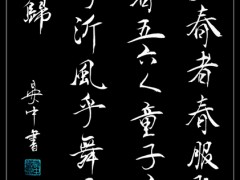 春者春服
五六人童子
沂風乎舞
歸
吳中書